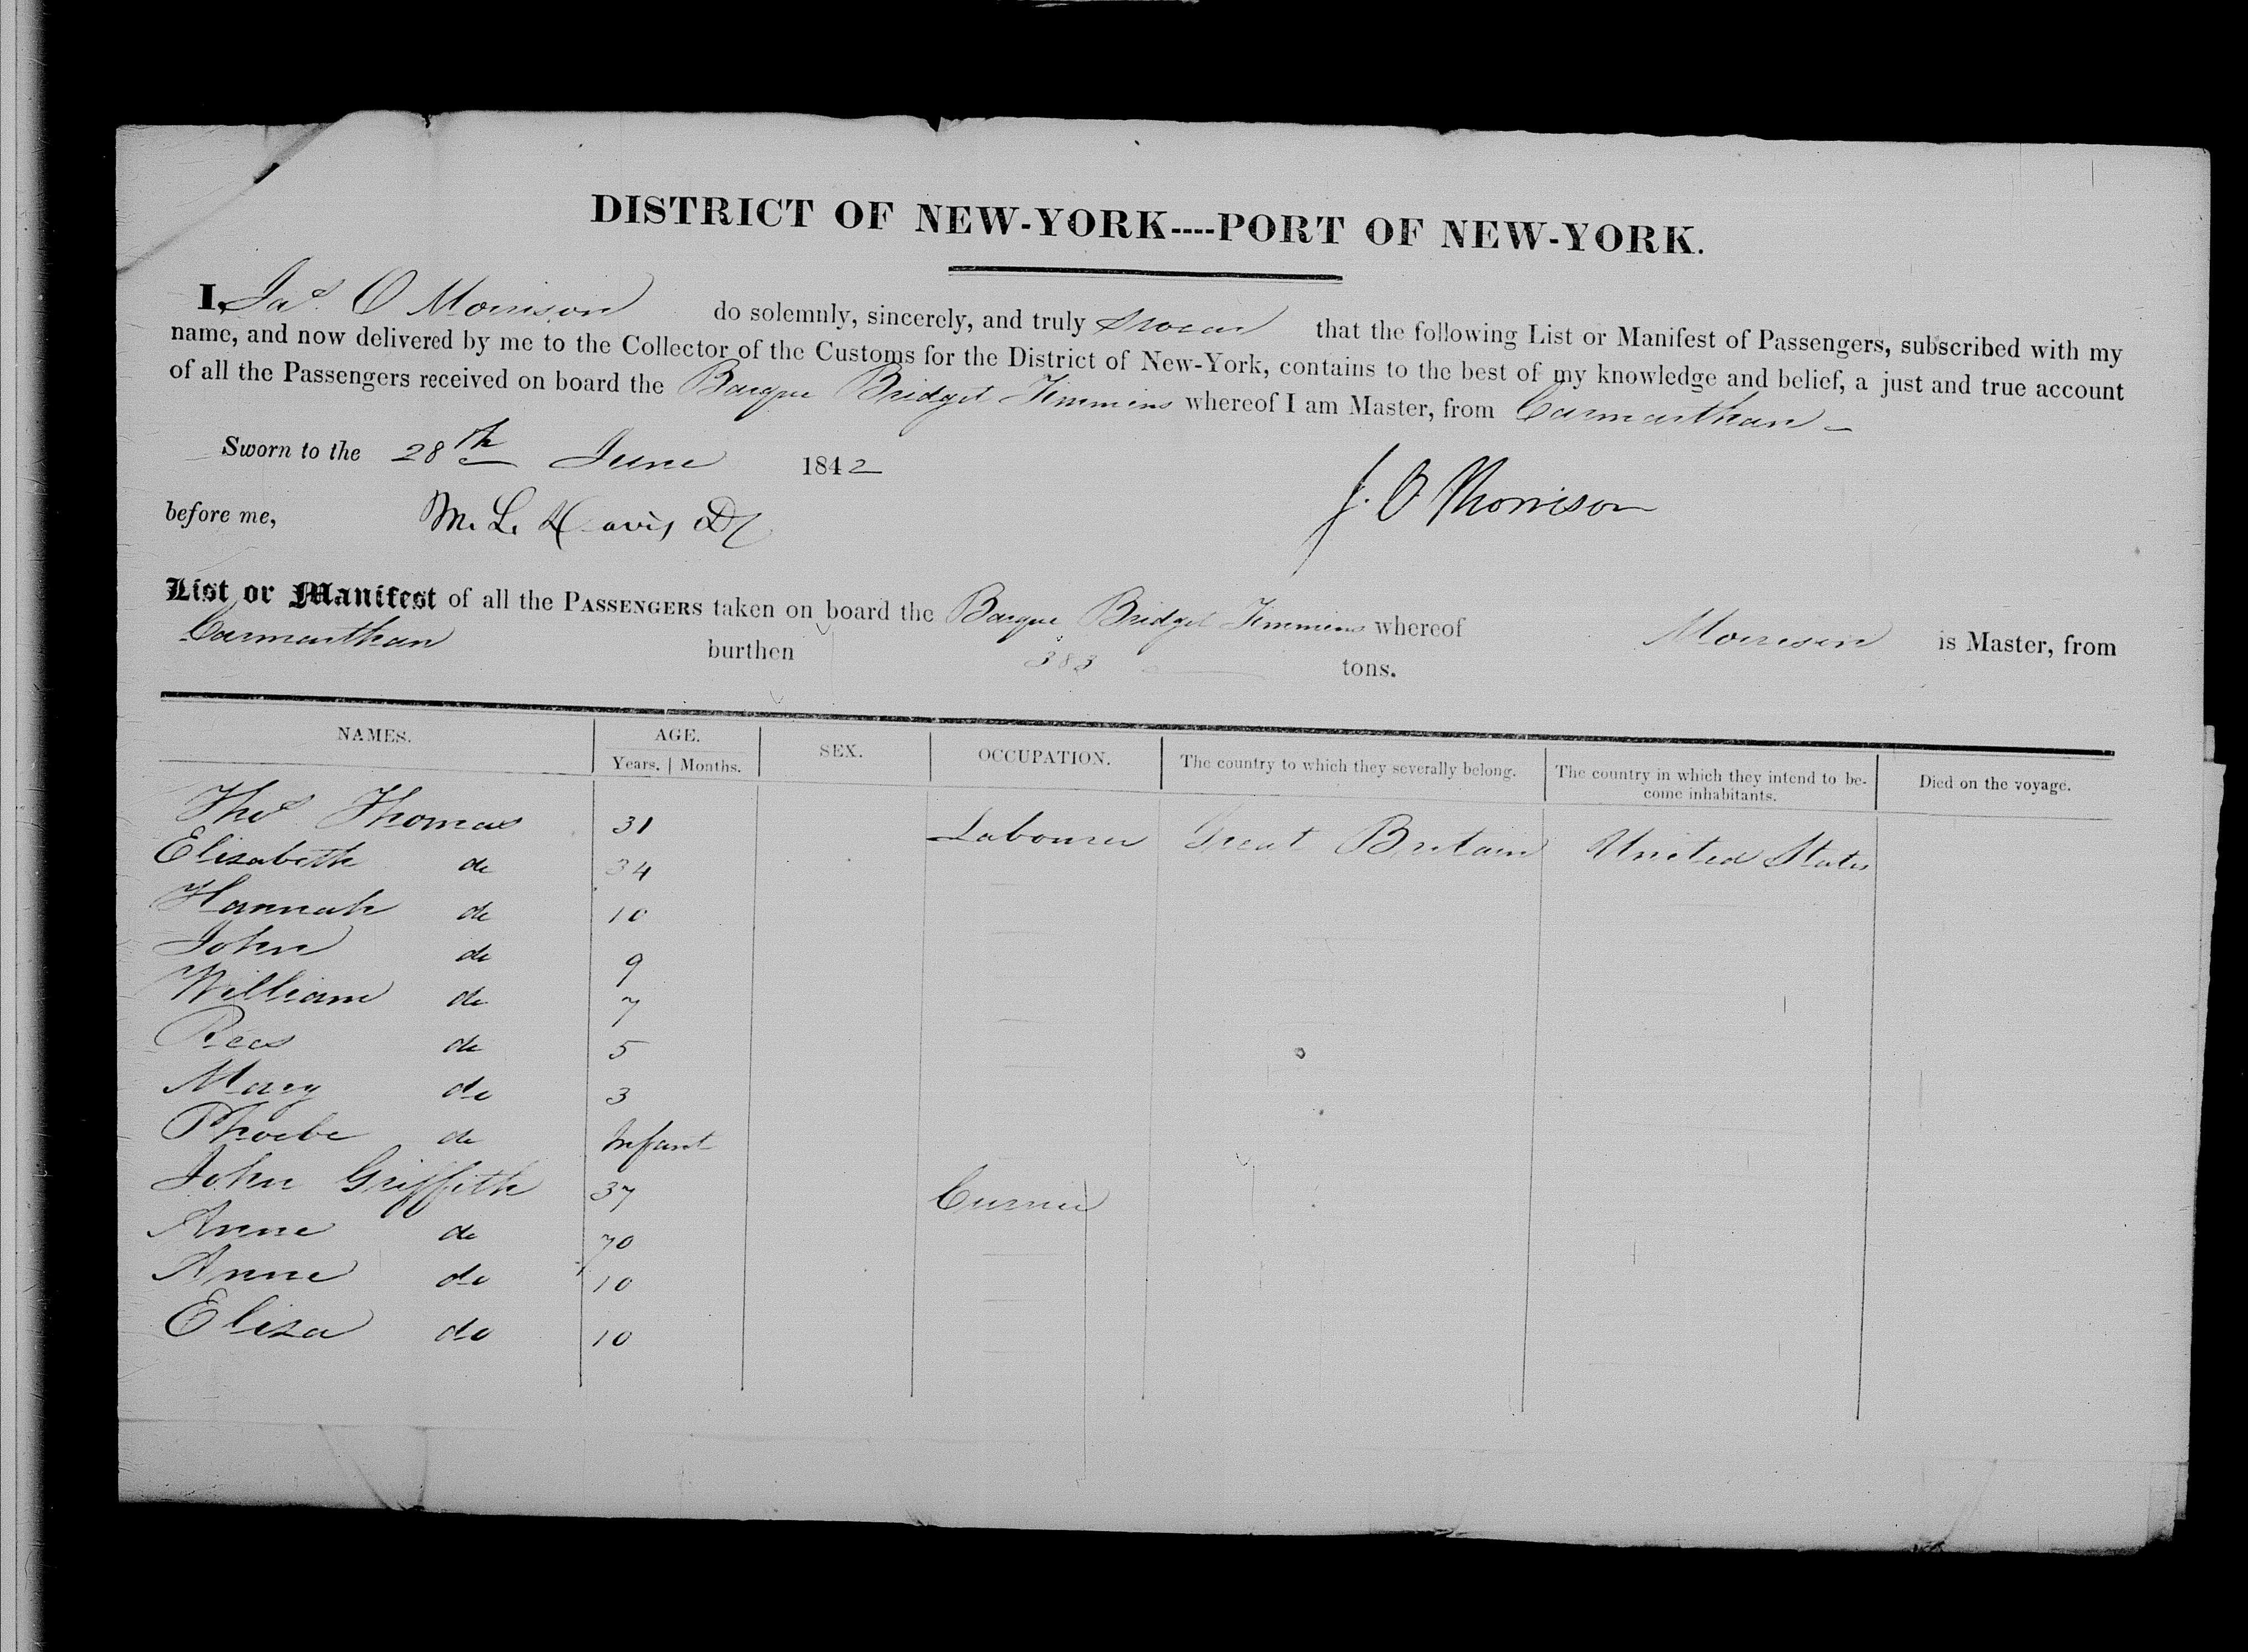 DISTRICT OF NEW-YORK----PORT OF NEW-YORK.
I, Jas. O Morrison do solemnly, sincerely, and truly swear that the following List or Manifest of Passengers, subscribed with my
name, and now delivered by me to the Collector of the Customs for the District of New-York, contains to the best of my knowledge and belief, a just and true account
of all the Passengers received on board the Barque Bridget Timmins whereof I am Master, from Carmarthan
Sworn to the 28th June 1842
before me, M. L. Davis J. O Morrison
List or Manifest of all the PASSENGERS taken on board the Barque Bridget Timmins whereof Morrison is Master, from
Carmarthan burthen 383 tons.
NAMES. AGE. SEX. OCCUPATION. The country to which they severally belong. The country in which they intend to be- Died on the voyage.
Years. | Months. come inhabitants.
Thos. Thomas 31 Labourer Great Britain United States
Elizabeth do 34
Hannah do 10
John do 9
William do 7
Rees do 5
Mary do 3
Phoebe do Infant
John Griffith 37 Currier
Anne do 70
Anne do 10
Eliza do 10